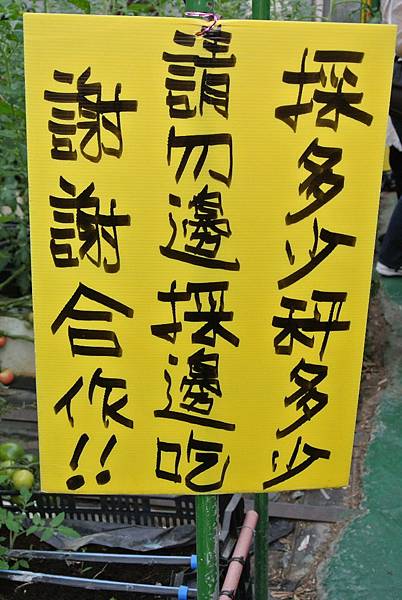 採多少秤多少
請勿邊採邊吃
謝謝合作!!